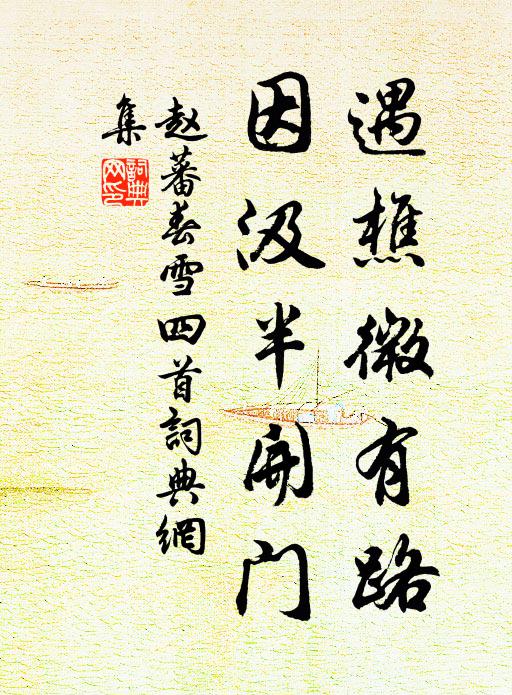 遇樵微有路
因汲半開门
赵蕃春雪四首詞典網
集
詞典
网印